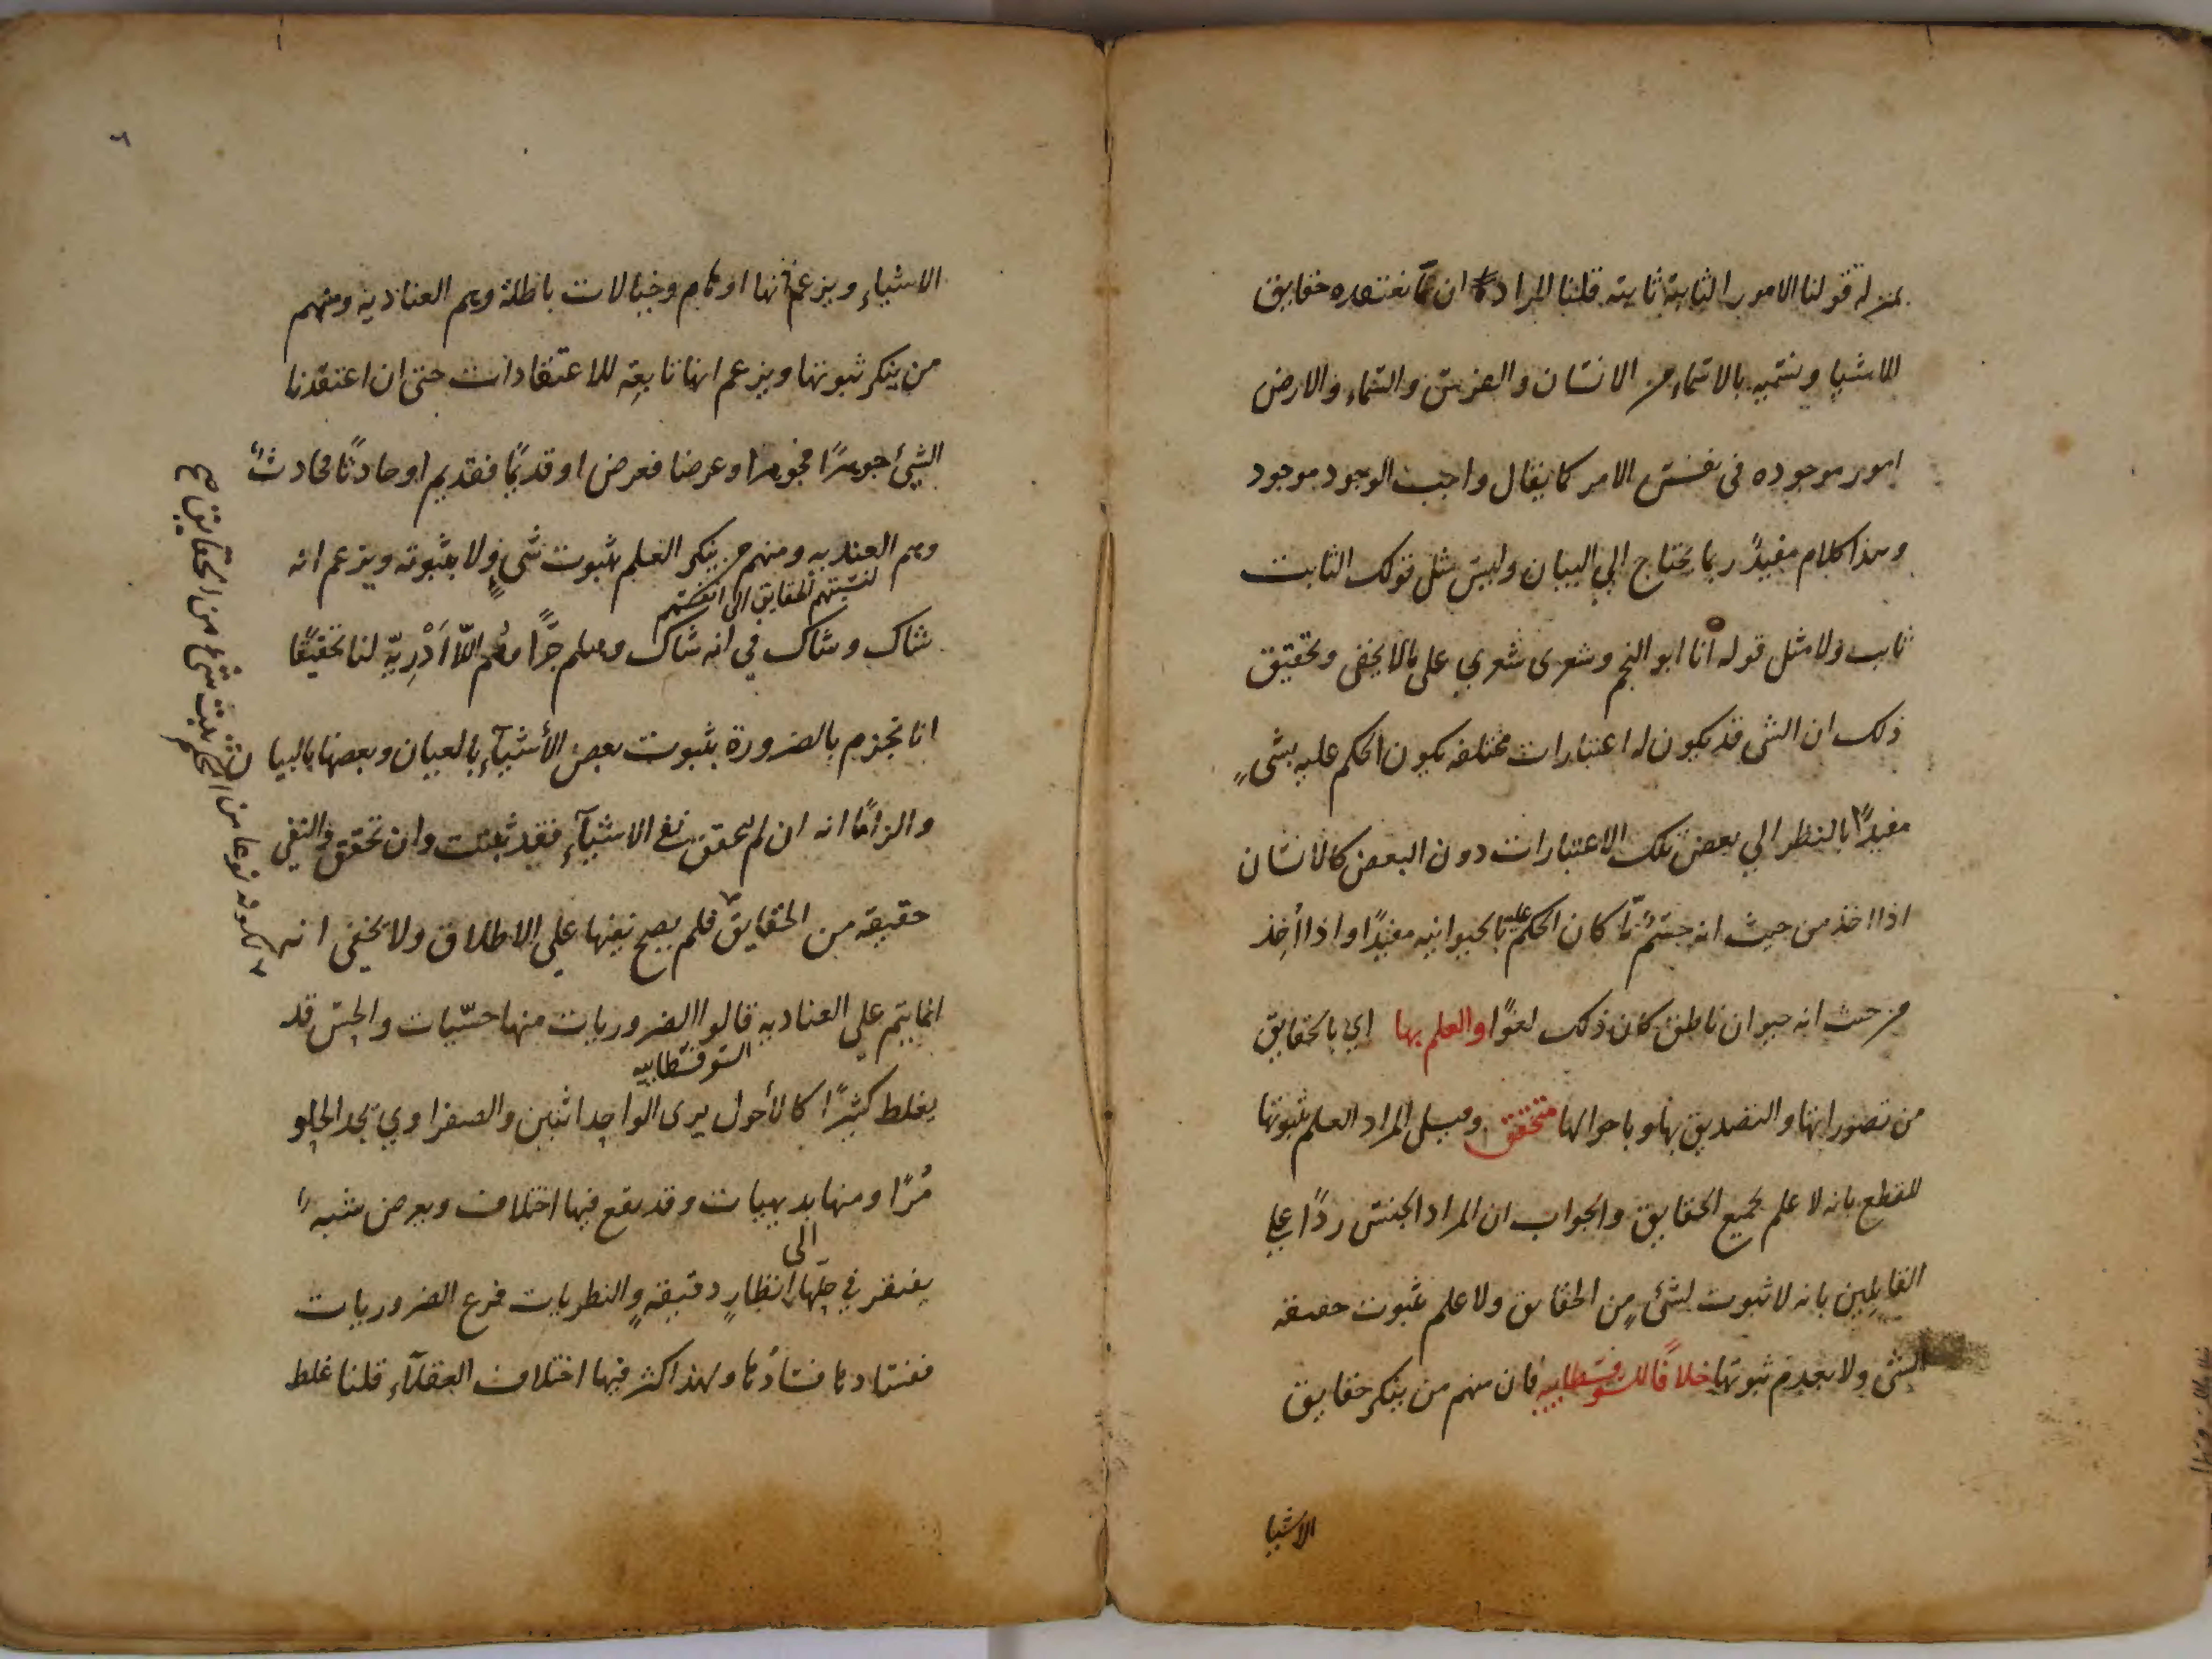 بمنزلة قولنا الامور الثابتة ثابتة قلنا المراد ان ما نعتقده حقايق
للاشيا ونسميه بالاسماء من الانسان والفرس والسماء والارض
امور موجوده في نفس الامر كما يقال واجب الوجود موجود
وهذا كلام مفيدٌ ربما يحتاج الي البيان وليس مثل قولك الثابت
ثابت ولا مثل قوله انا ابو النجم وشعرى شعري على مالا يخفى وتحقيق
ذلك ان الشى قد يكون له اعتبارات مختلفه يكون الحكم عليه بشىءٍ
مفيدًا بالنظر الي بعض تلك الاعتبارات دون البعض كالانسان
اذا اخذ من حيث انه جسمٌ مّا كان الحكم عليه بالحيوانيه مفيدًا واذا أُخِذ
من حيث انه حيوان ناطق كان ذلك لغوًا والعلم بها اي بالحقايق
من تصوراتها والتصديق بها وباحوالها متحقق وقيل المراد العلم بثبوتها
للقطع بانه لا علم بجميع الحقايق والجواب ان المراد الجنس ردًا علي
القايلين بانه لا ثبوت لشئ من الحقايق ولا علم بثبوت حقيقه
الشى ولا بعدم ثبوتها خلافًا للسوفسطاييه فان منهم من ينكر حقايق
الاشيا
الاشياءِ ويزعم انها اوهام وخيالات باطلة وهم العنادية ومنهم
من ينكر ثبوتها ويزعم انها تابعة للاعتقادات حتى ان اعتقدنا
الشئ جوهرًا فجوهر او عرضا فعرض او قديمًا فقديم او حادثًا فحادث
وهم العنديه ومنهم من ينكر العلم بثبوت شىءٍ ولا بثبوته ويزعم انه
لنسبتهم الحقايق الى انفسهم
شاك وشاك في انه شاك وهلم جرًّا وهُم اللّا اَدْرِيّه لنا تحقيقًا
انا نجزم بالضرورة بثبوت بعض الأشيآءِ بالعيان وبعضها بالبيان
والزامًا انه ان لم يتحقق نفى الاشيآءِ فقد ثبتت وان تحقق فالنفي
حقيقه من الحقايق فلم يصح نفيها علي الاطلاق ولا يخفى انه
لكونه نوعا من الحكم ثبت شئ من الحقايق
انما يتم علي العناديه قالوا الضروريات منها حسّيات والحِسّ قد
السوفسطاييه
يغلط كثيرًا كالأحول يرى الواحد اثنين والصفراوي يجد الحلو
مُرًّا ومنها بديهيات وقد يقع فيها اختلاف ويعرض شبه
يفتقر في حلّها الى انظارٍ دقيقهٍ والنظريات فرع الضروريات
ففسادها فسادُها ولهذا كثر فيها اختلاف العقلآءِ قلنا غلط